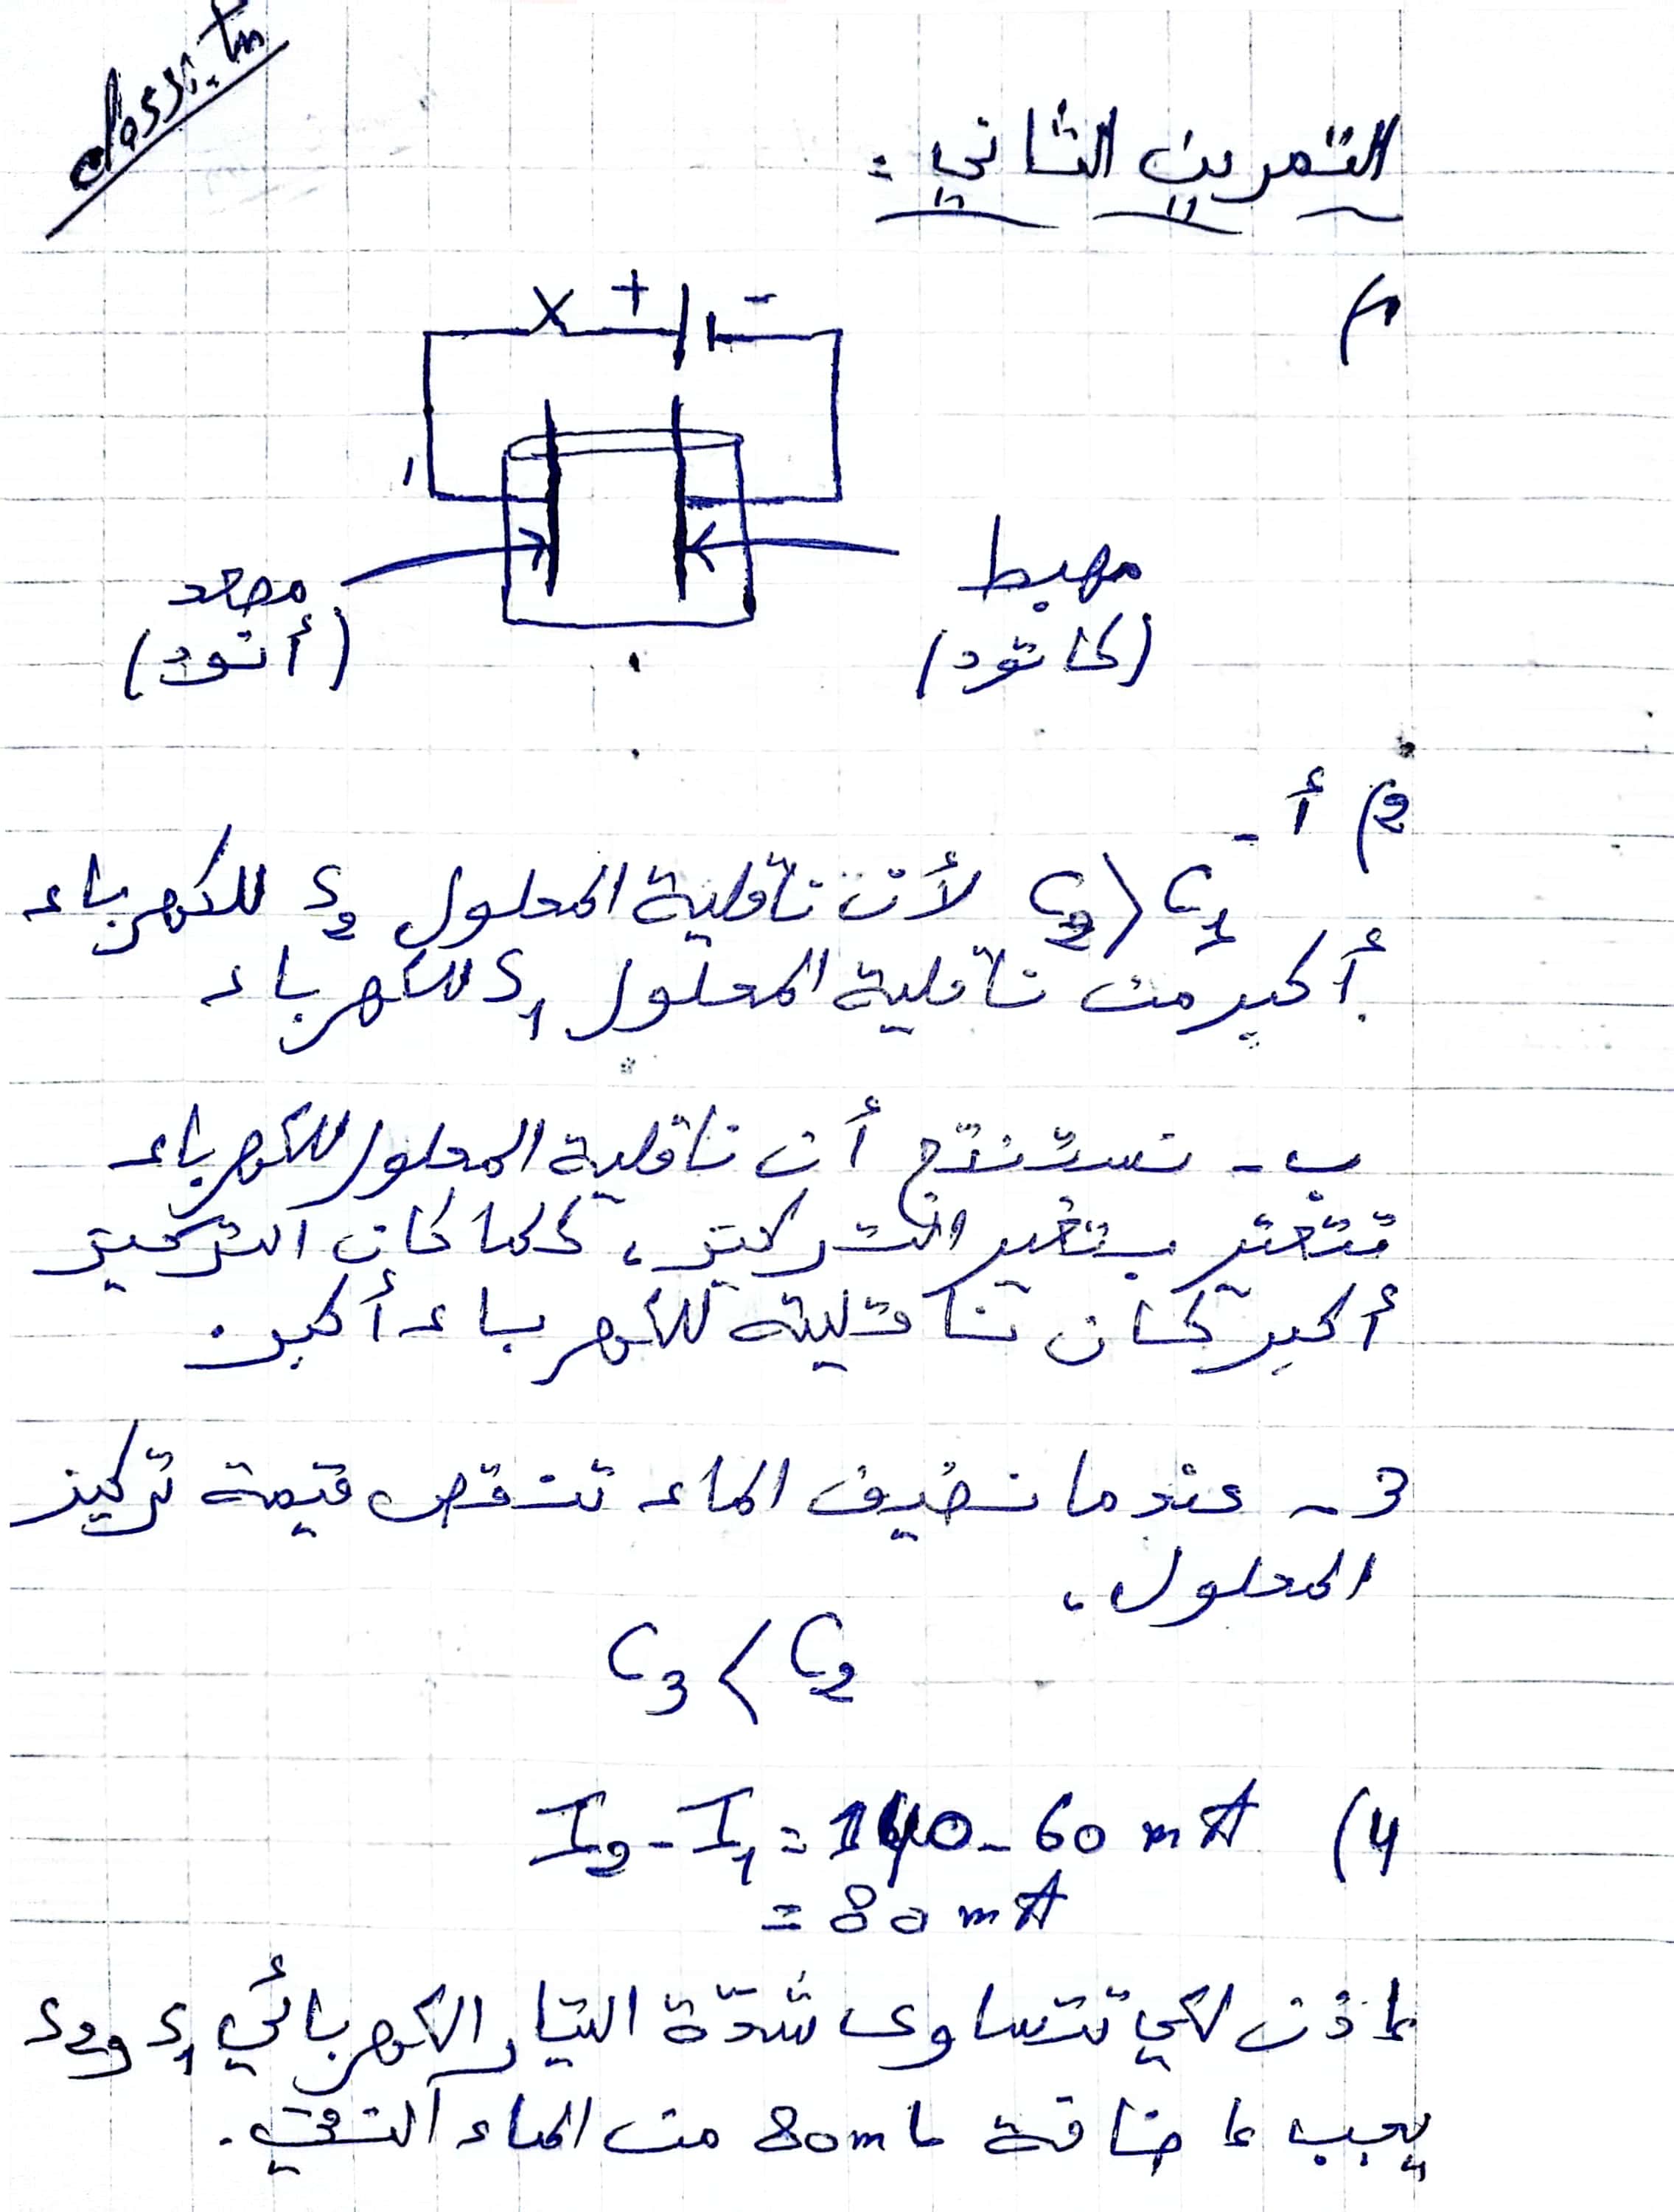 classi.tn
التمرين الثاني :
1)
X + -
مصعد
(أنود)
مهبط
(كاتود)
2) أ -
C2 > C1 لأن ناقلية المحلول S2 للكهرباء
أكبر من ناقلية المحلول S1 للكهرباء
ب - نستنتج أن ناقلية المحلول للكهرباء
تتغير بتغير التركيز، كلما كان التركيز
أكبر كان ناقلية للكهرباء أكبر.
3 - عندما نضيف الماء تنقص قيمة تركيز
المحلول،
C3 < C2
4) I2 - I1 = 140 - 60 mA
= 80 mA
إذن لكي تتساوى شدّة التيار الكهربائي S1 و S2
يجب إضافة 80mL من الماء النقي.